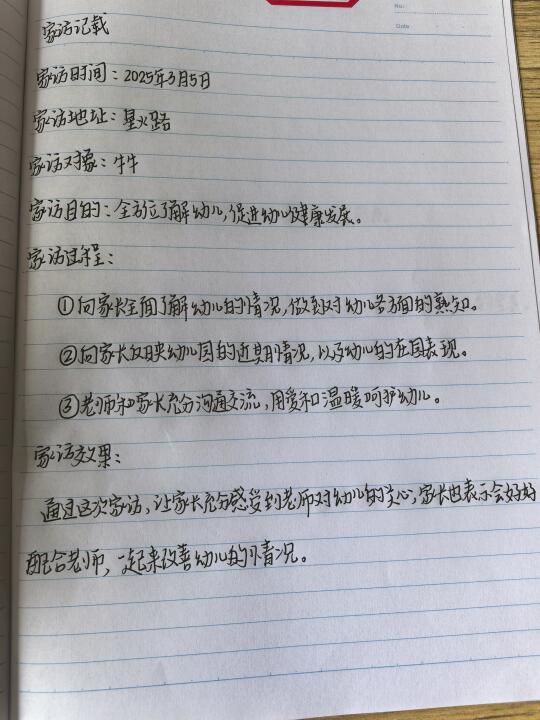 No:
Date
家访记载
家访时间：2025年3月5日
家访地址：星火路
家访对象：牛牛
家访目的：全方位了解幼儿，促进幼儿健康发展。
家访过程：
①向家长全面了解幼儿的情况，做到对幼儿各方面的熟知。
②向家长反映幼儿园的近期情况，以及幼儿的在园表现。
③老师和家长充分沟通交流，用爱和温暖呵护幼儿。
家访效果：
通过这次家访，让家长充分感受到老师对幼儿的关心，家长也表示会好好
配合老师，一起来改善幼儿的情况。